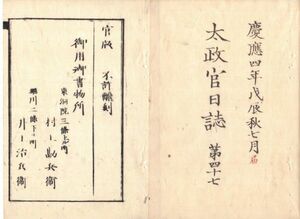 慶應四年戊辰秋七月
太政官日誌 第四十七
官版 不許翻刻
御用御書物所
東洞院三條上ル町
村上勘兵衞
堀川二條下ル町
井上治兵衞